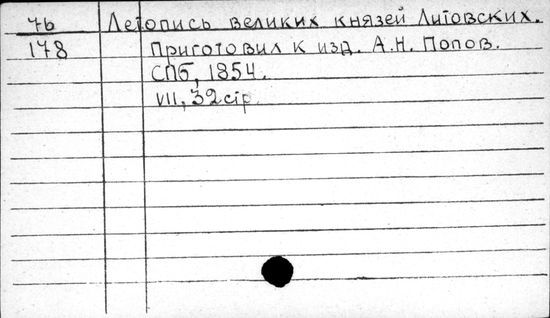 76 Летопись великих князей Литовских.
178 Приготовил к изд. А.Н. Попов.
СПб, 1854.
VII, 32 стр.